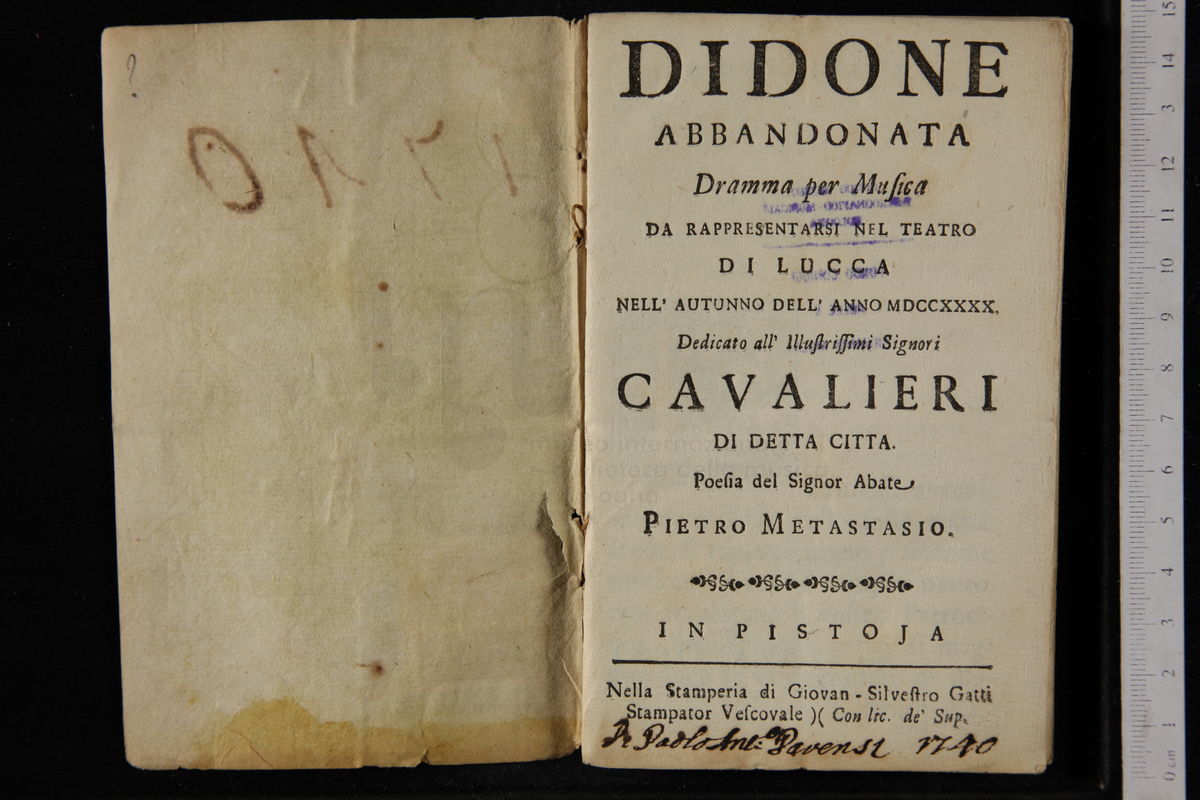 ?
DIDONE
ABBANDONATA
Dramma per Muſica
DA RAPPRESENTARSI NEL TEATRO
DI LUCCA
NELL' AUTUNNO DELL' ANNO MDCCXXXX.
Dedicato all' Illuſtriſſimi Signori
CAVALIERI
DI DETTA CITTA.
Poeſia del Signor Abate
PIETRO METASTASIO.
IN PISTOJA
Nella Stamperia di Giovan-Silveſtro Gatti
Stampator Veſcovale )( Con lic. de' Sup.
Paolo Ant: Pavensi 1740
15
14
3
12
11
10
9
8
7
6
5
4
3
2
1
0 cm